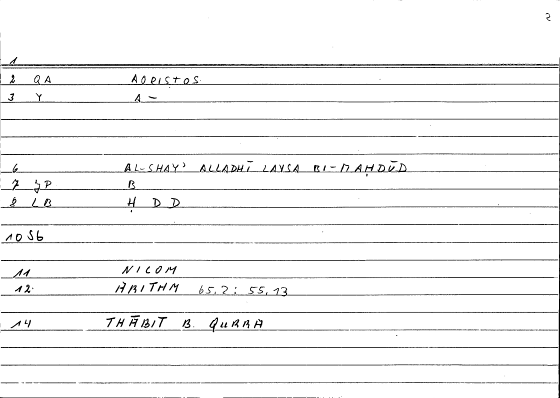 2
1
2 QA AORISTOS
3 Y A –
6 AL-SHAYʾ ALLADHĪ LAYSA BI-MAḤDŪD
7 JP B
8 LB Ḥ D D
10 S6
11 NICOM
12 ARITHM 65,2; 55,13
14 THĀBIT B. QURRA